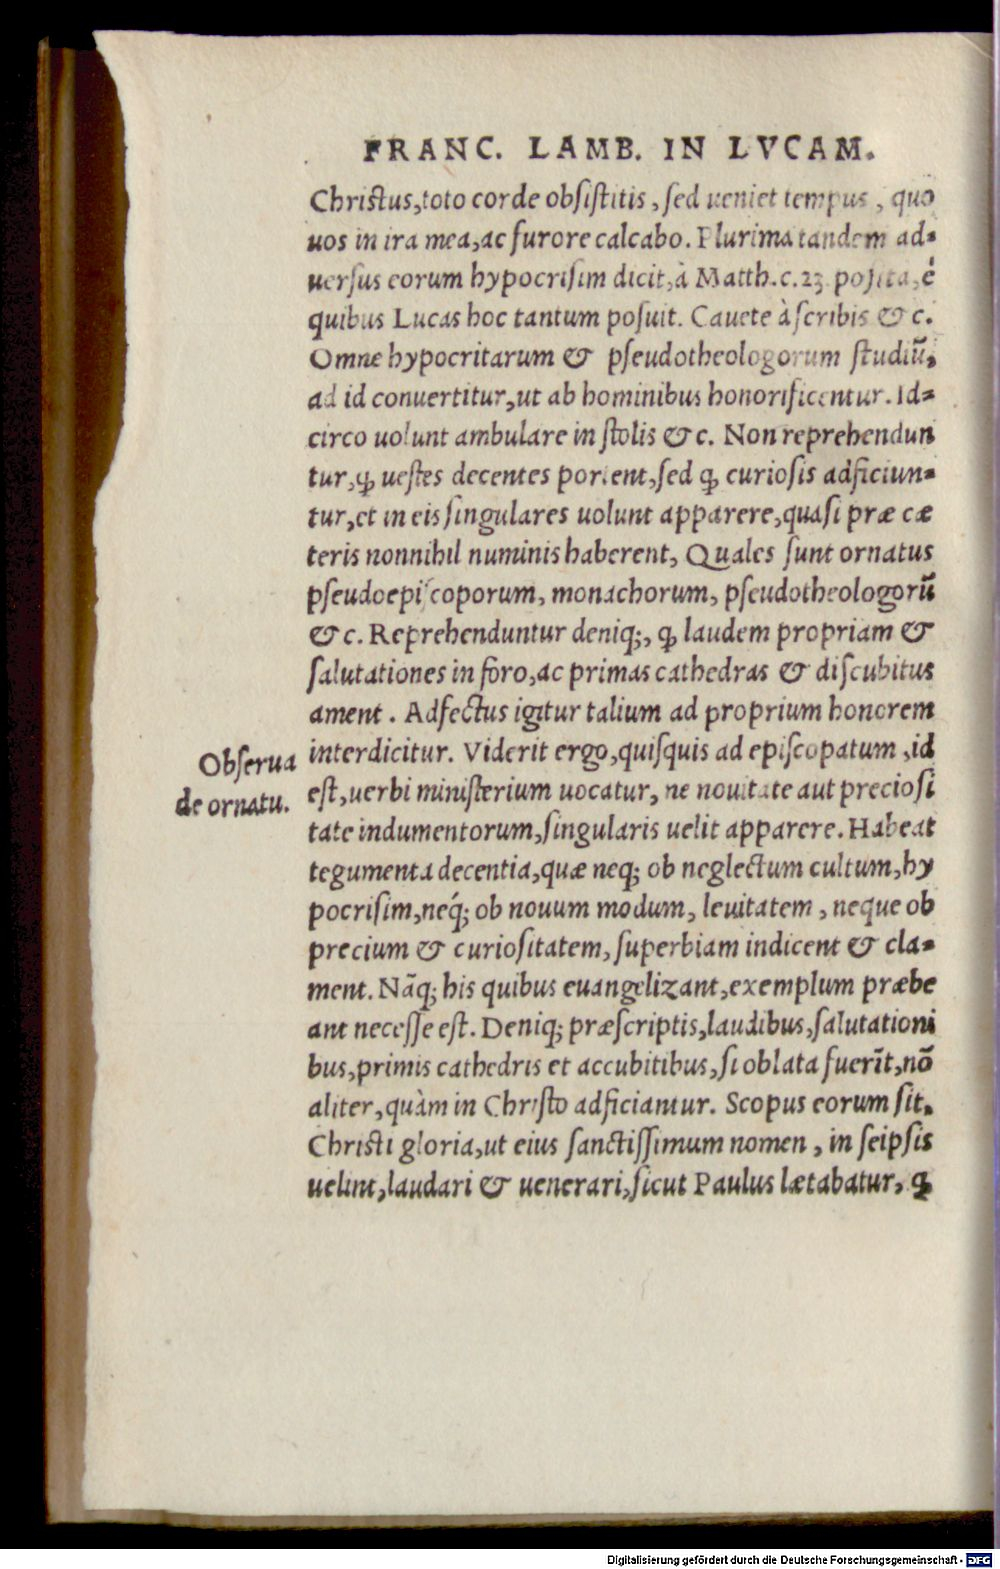 FRANC. LAMB. IN LVCAM.
Christus, toto corde obsistitis, sed ueniet tempus, quo
uos in ira mea, ac furore calcabo. Plurima tandem ad=
uersus eorum hypocrisim dicit, à Matth. c. 23 posita, è
quibus Lucas hoc tantum posuit. Cauete à scribis & c.
Omne hypocritarum & pseudotheologorum studiũ,
ad id conuertitur, ut ab hominibus honorificentur. Id=
circo uolunt ambulare in stolis & c. Non reprehendun
tur, ꝙ uestes decentes portent, sed ꝙ curiosis adficiun=
tur, et in eis singulares uolunt apparere, quasi præ cæ
teris nonnihil numinis haberent, Quales sunt ornatus
pseudoepiscoporum, monachorum, pseudotheologorũ
& c. Reprehenduntur deniq;, ꝙ laudem propriam &
salutationes in foro, ac primas cathedras & discubitus
ament. Adfectus igitur talium ad proprium honorem
interdicitur. Viderit ergo, quisquis ad episcopatum, id
est, uerbi ministerium uocatur, ne nouitate aut preciosi
tate indumentorum, singularis uelit apparere. Habeat
tegumenta decentia, quæ neq; ob neglectum cultum, hy
pocrisim, neq́; ob nouum modum, leuitatem, neque ob
precium & curiositatem, superbiam indicent & cla=
ment. Nãq; his quibus euangelizant, exemplum præbe
ant necesse est. Deniq; præscriptis, laudibus, salutationi
bus, primis cathedris et accubitibus, si oblata fuerĩt, nõ
aliter, quàm in Christo adficiantur. Scopus eorum sit,
Christi gloria, ut eius sanctissimum nomen, in seipsis
uelint, laudari & uenerari, sicut Paulus lætabatur, ꝙ
Obserua
de ornatu.
Digitalisierung gefördert durch die Deutsche Forschungsgemeinschaft - DFG